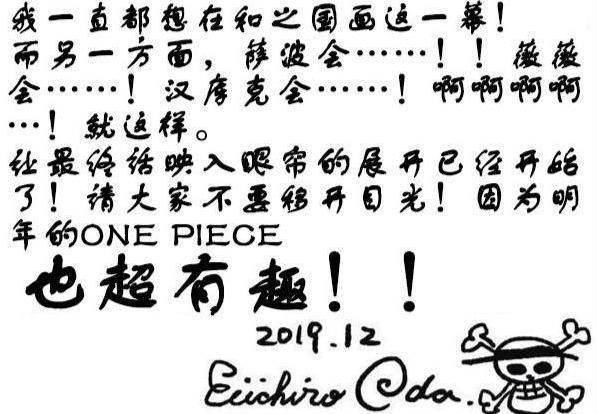 我一直都想在和之国画这一幕！
而另一方面，萨波会……！！薇薇
会……！汉库克会……！啊啊啊啊
…！就这样。
让最终话映入眼帘的展开已经开始
了！请大家不要移开目光！因为明
年的ONE PIECE
也超有趣！！
2019.12
Eiichiro Oda.